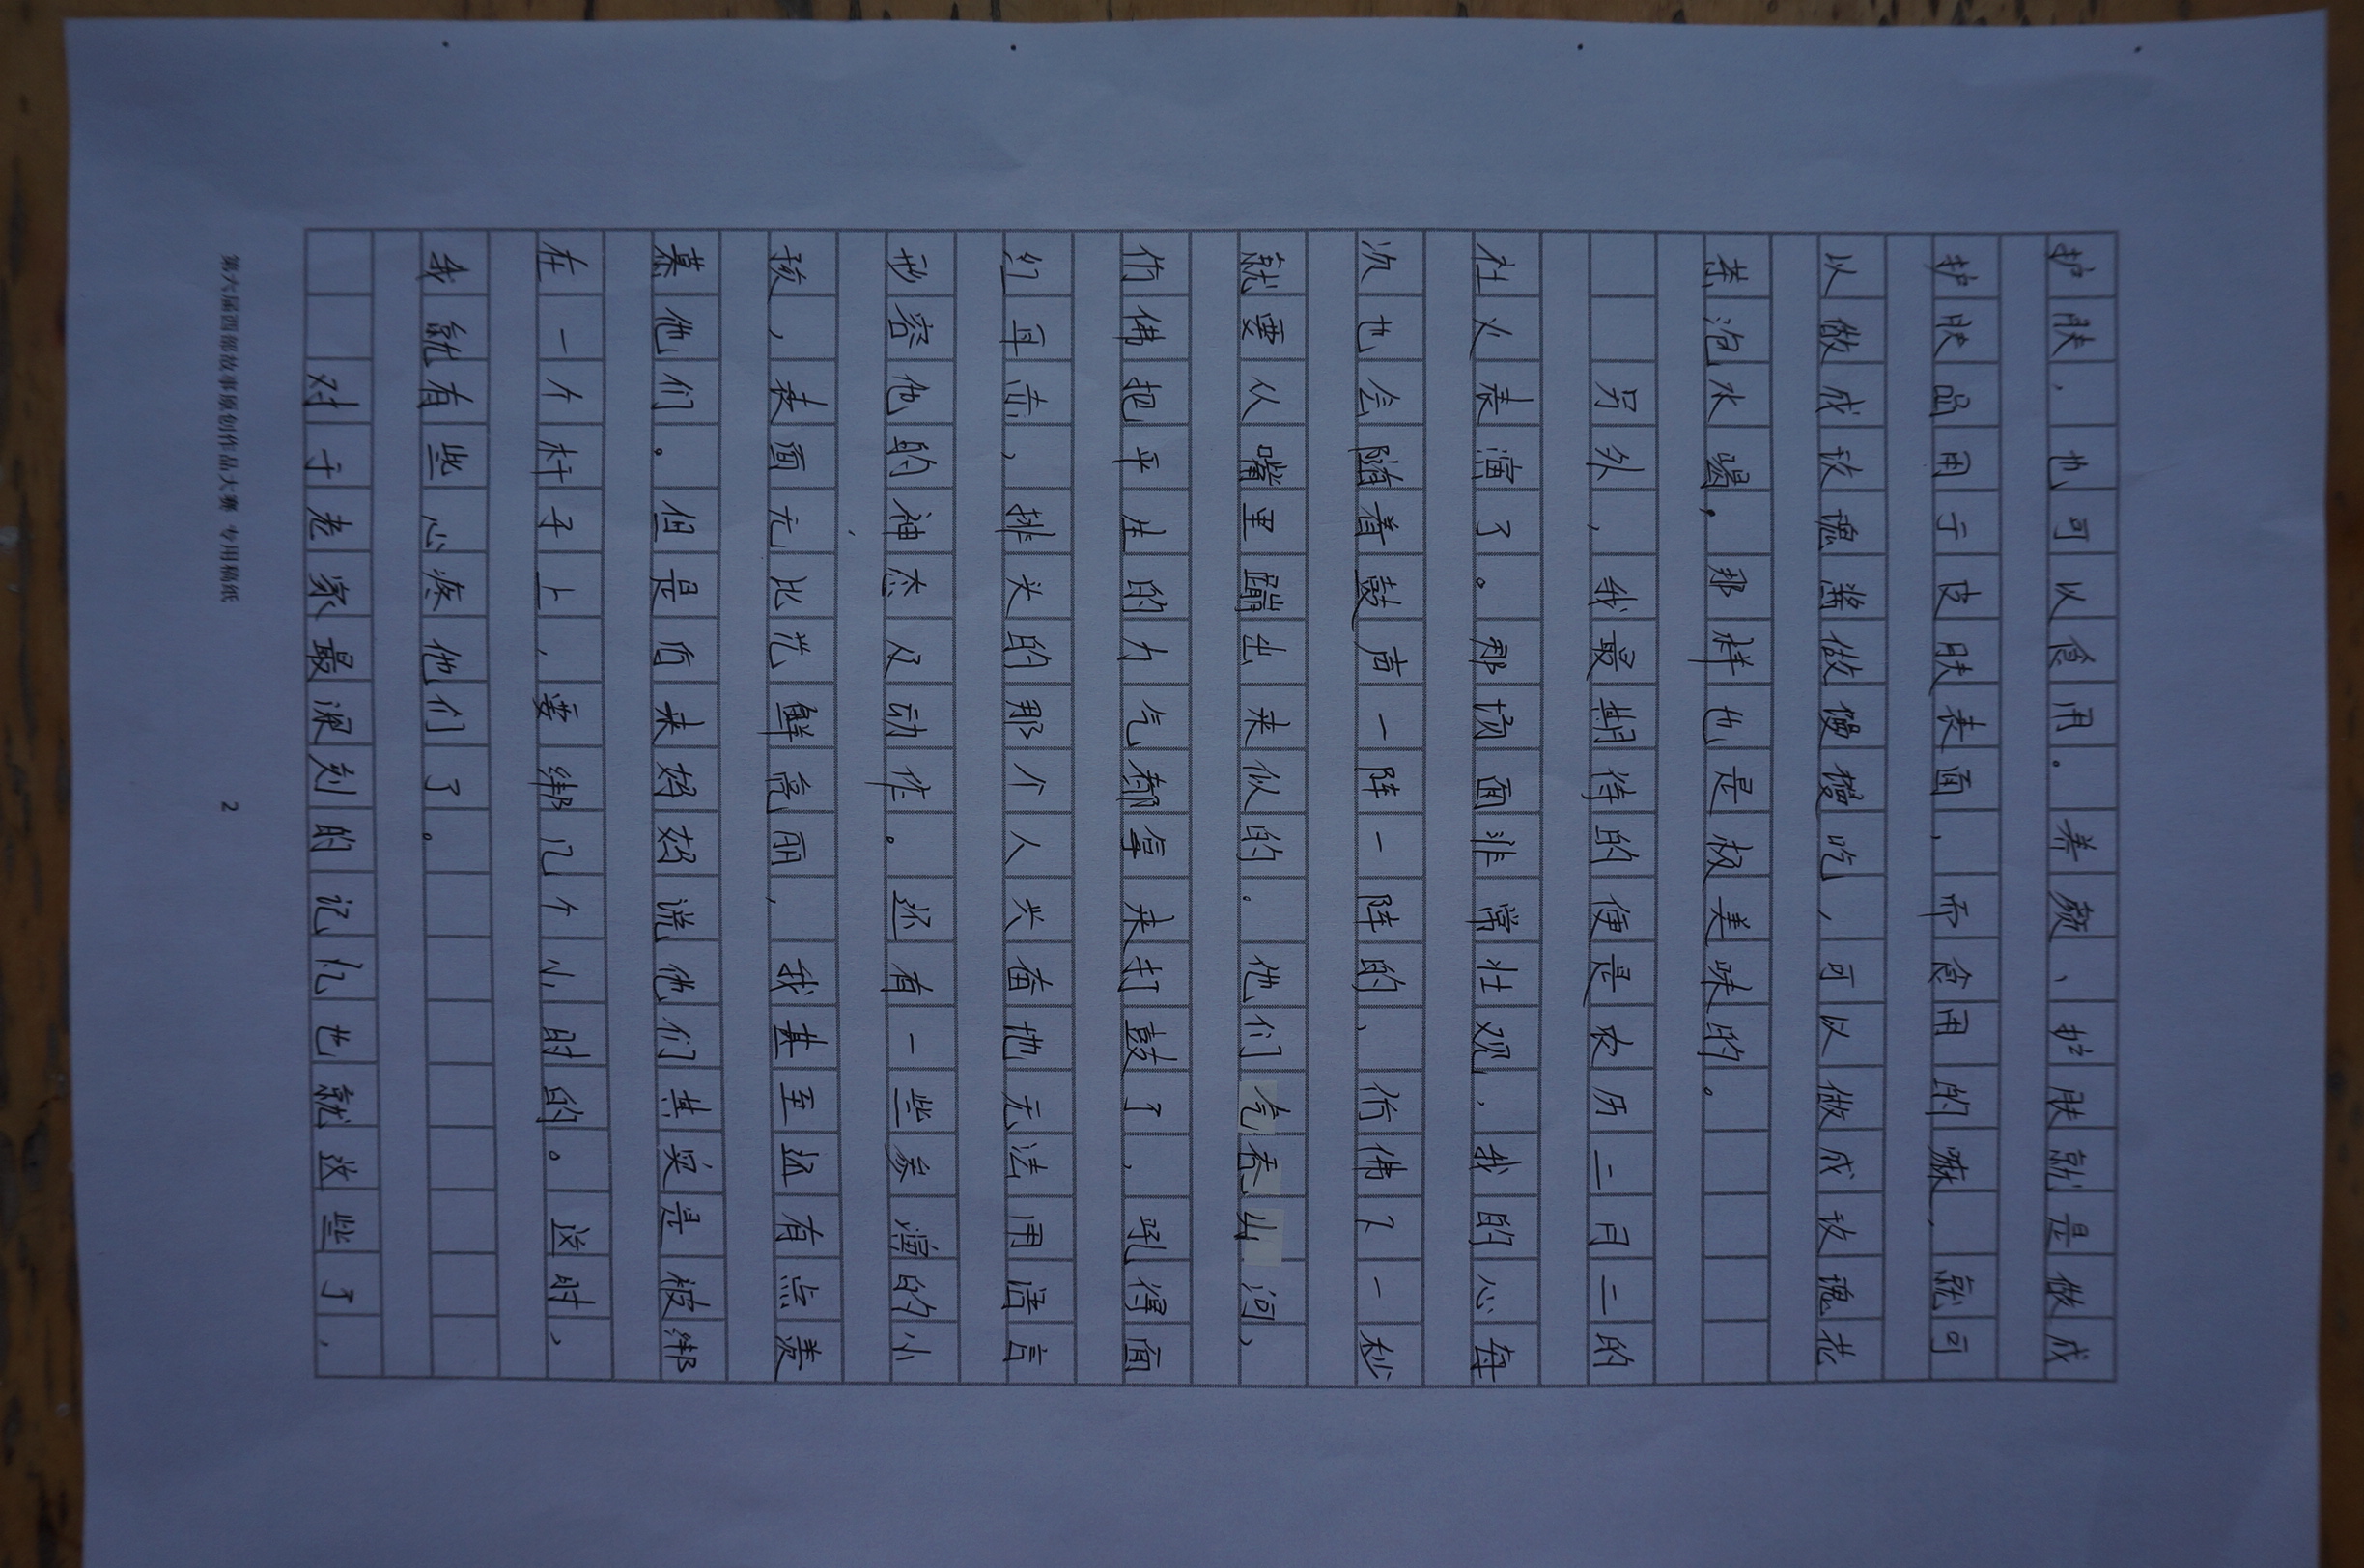 护肤，也可以食用。养颜、护肤就是做成
护肤品用于皮肤表面，而食用的嘛，就可
以做成玫瑰酱做馒馒吃，可以做成玫瑰花
茶泡水喝，那样也是极美味的。
另外，我最期待的便是农历二月二的
社火表演了。那场面非常壮观，我的心每
次也会随着鼓声一阵一阵的、仿佛下一秒
就要从嘴里蹦出来似的。他们气吞山河、
仿佛把平生的力气都拿来打鼓了，吼得面
红耳赤，排头的那个人兴奋地无法用语言
形容他的神态及动作。还有一些参演的小
孩，表面无比光鲜亮丽，我甚至还有点羡
慕他们。但是后来妈妈说他们其实是被绑
在一个杆子上，要绑几个小时的。这时，
我就有些心疼他们了。
对于老家最深刻的记忆也就这些了，
第六届西部故事原创作品大赛 专用稿纸 2